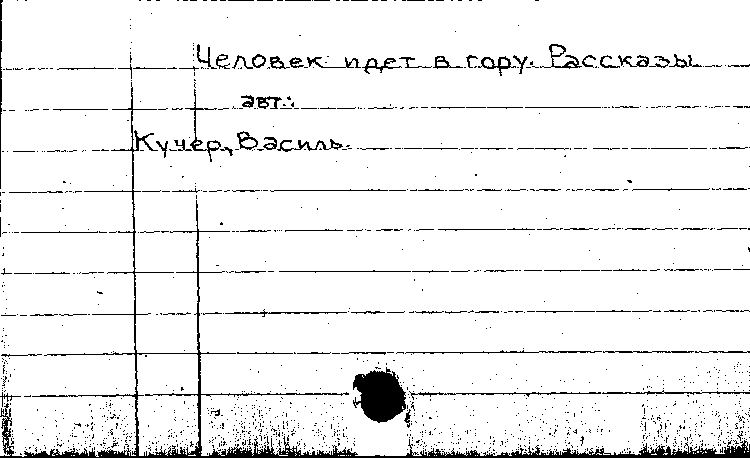 Человек идет в гору. Рассказы
авт.:
Кучер, Василь.